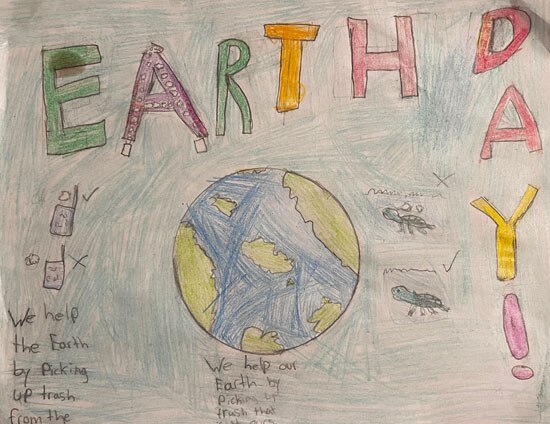 EARTH DAY!
We help
the Earth
by Picking
up trash
from the
We help our
Earth by
picking up
trash that